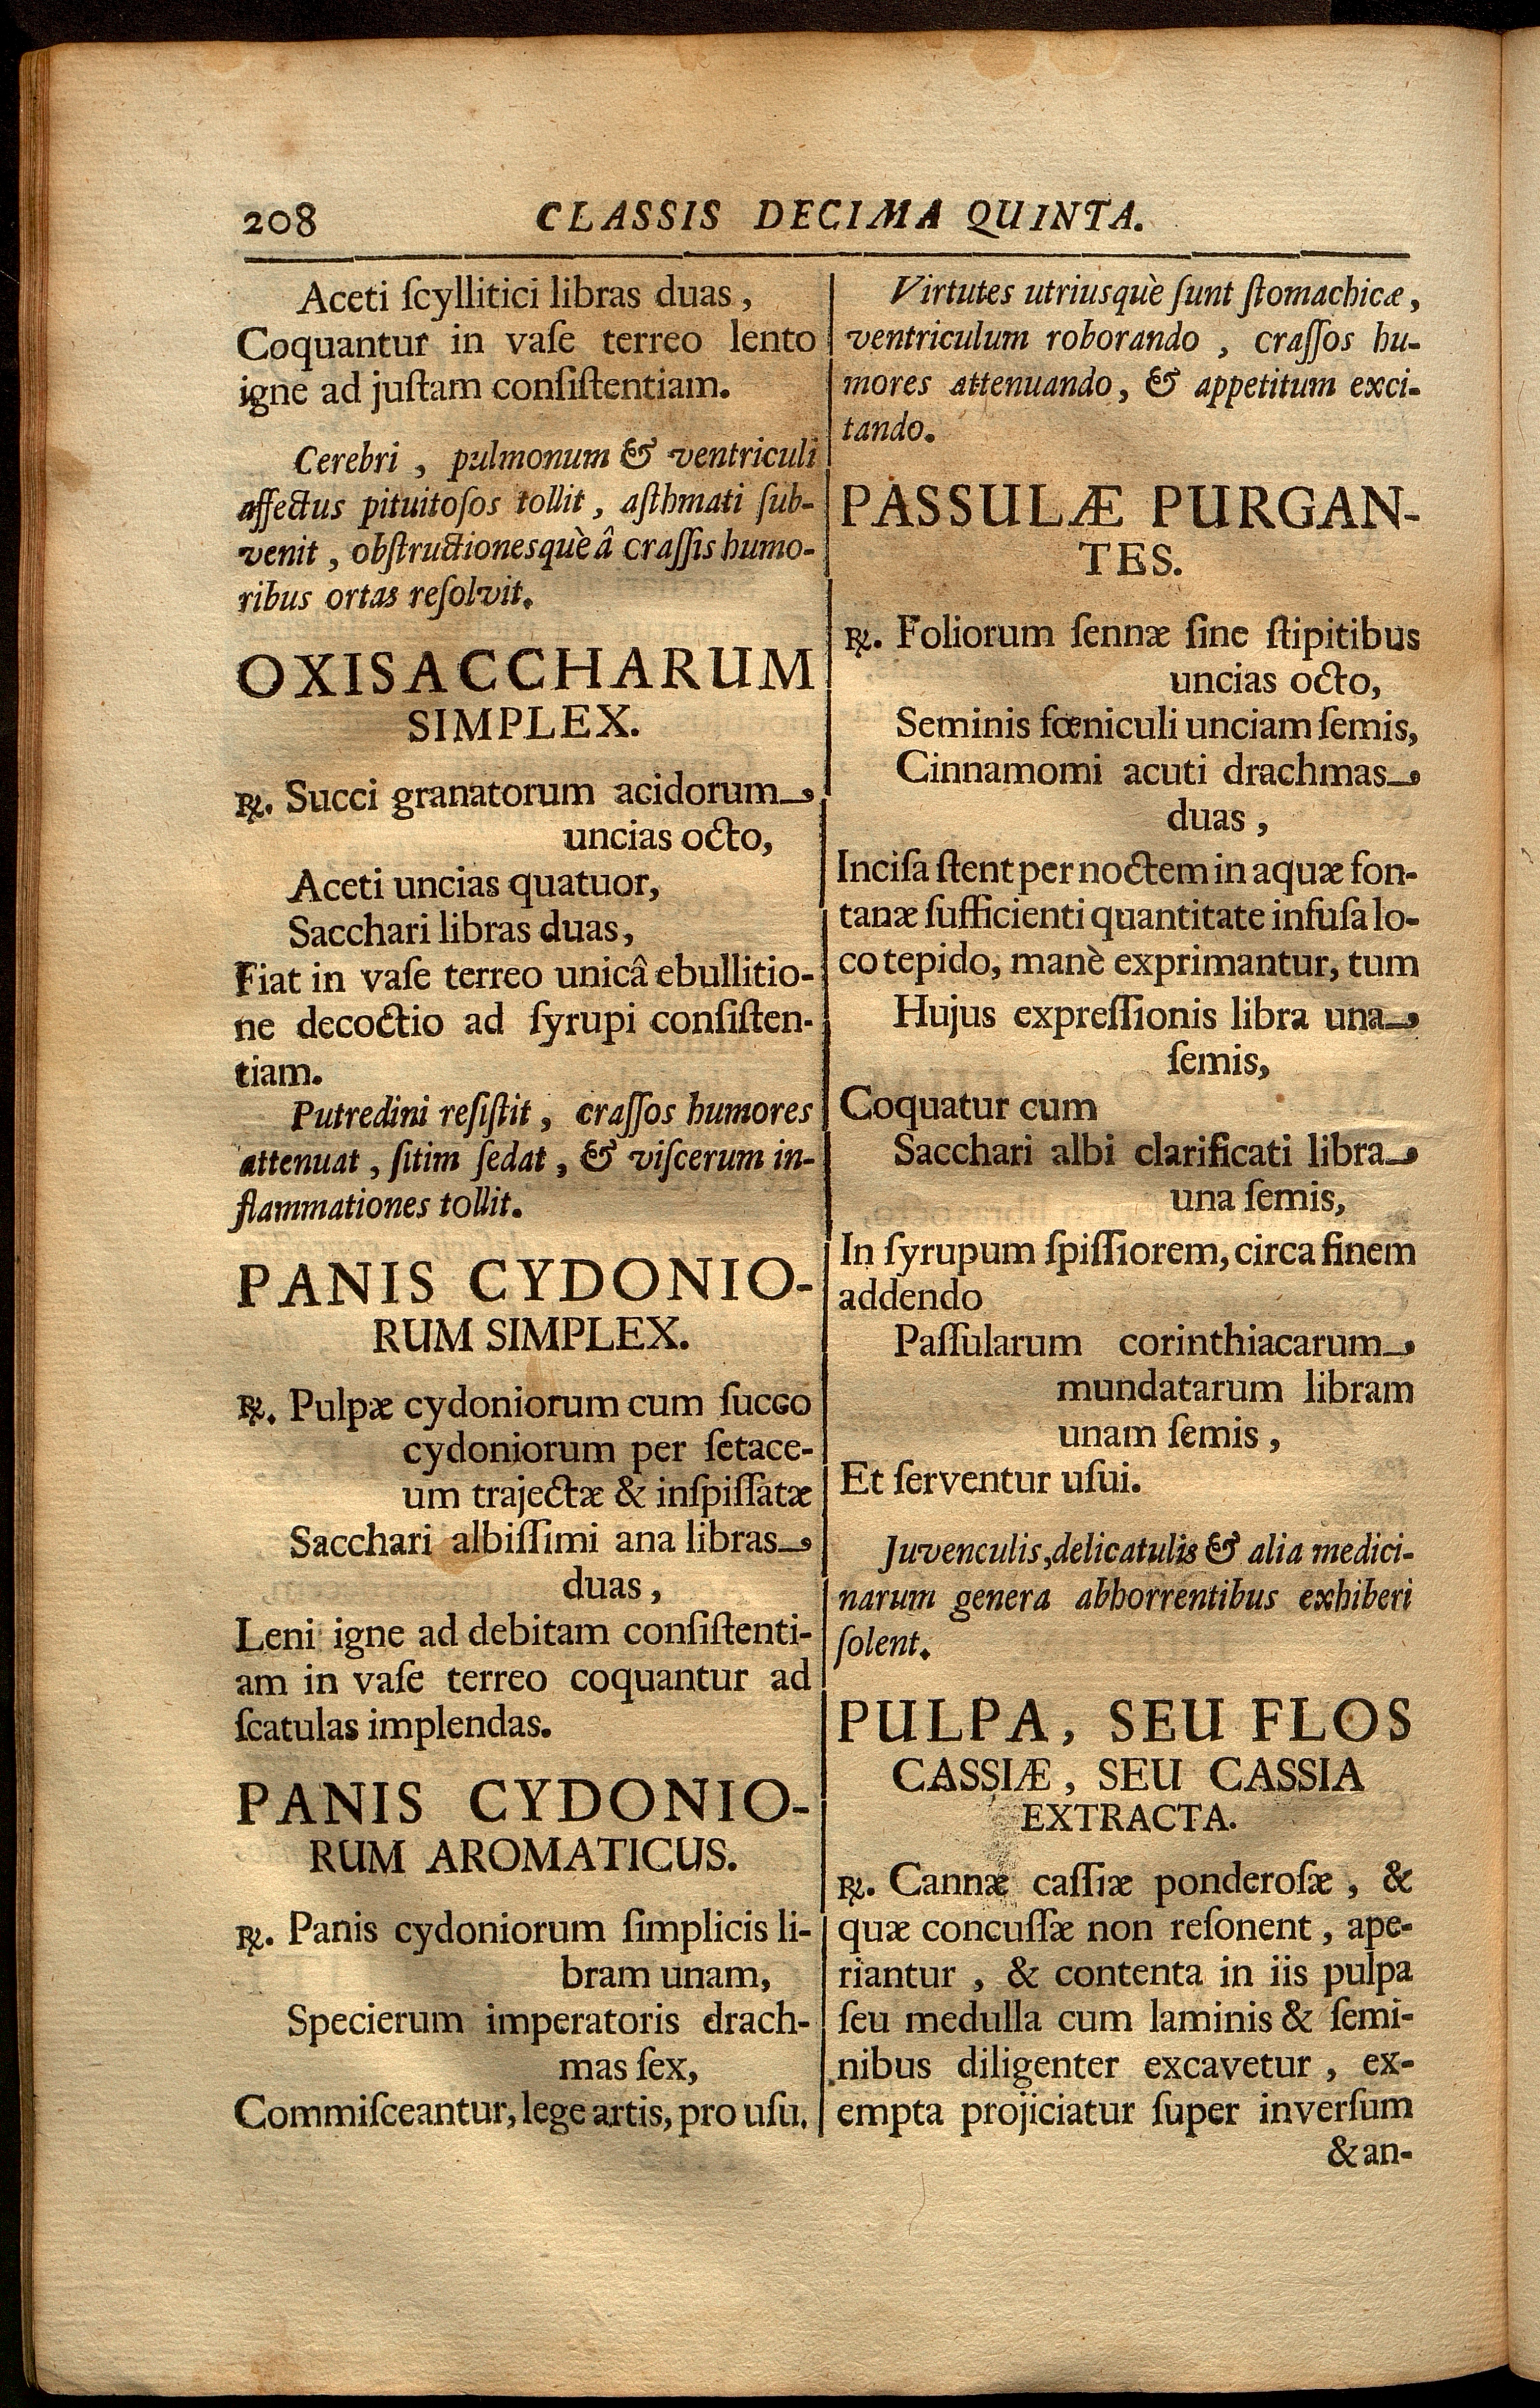 208 CLASSIS DECIMA QUINTA.
Aceti ſcyllitici libras duas,
Coquantur in vaſe terreo lento
igne ad juſtam conſiſtentiam.
Cerebri, pulmonum & ventriculi
affectus pituitoſos tollit, aſthmati ſub-
venit, obſtructionesquè â craſſis humo-
ribus ortas reſolvit.
OXISACCHARUM
SIMPLEX.
℞. Succi granatorum acidorum
uncias octo,
Aceti uncias quatuor,
Sacchari libras duas,
Fiat in vaſe terreo unicâ ebullitio-
ne decoctio ad ſyrupi conſiſten-
tiam.
Putredini reſiſtit, craſſos humores
attenuat, ſitim ſedat, & viſcerum in-
flammationes tollit.
PANIS CYDONIO-
RUM SIMPLEX.
℞. Pulpæ cydoniorum cum ſucco
cydoniorum per ſetace-
um trajectæ & inſpiſſatæ
Sacchari albiſſimi ana libras
duas,
Leni igne ad debitam conſiſtenti-
am in vaſe terreo coquantur ad
ſcatulas implendas.
PANIS CYDONIO-
RUM AROMATICUS.
℞. Panis cydoniorum ſimplicis li-
bram unam,
Specierum imperatoris drach-
mas ſex,
Commiſceantur, lege artis, pro uſu.
Virtutes utriusquè ſunt ſtomachicæ,
ventriculum roborando, craſſos hu-
mores attenuando, & appetitum exci-
tando.
PASSULÆ PURGAN-
TES.
℞. Foliorum ſennæ ſine ſtipitibus
uncias octo,
Seminis fœniculi unciam ſemis,
Cinnamomi acuti drachmas
duas,
Inciſa ſtent per noctem in aquæ fon-
tanæ ſufficienti quantitate infuſa lo-
co tepido, manè exprimantur, tum
Hujus expreſſionis libra una
ſemis,
Coquatur cum
Sacchari albi clarificati libra
una ſemis,
In ſyrupum ſpiſſiorem, circa finem
addendo
Paſſularum corinthiacarum
mundatarum libram
unam ſemis,
Et ſerventur uſui.
Juvenculis, delicatulis & alia medici-
narum genera abhorrentibus exhiberi
ſolent.
PULPA, SEU FLOS
CASSIÆ, SEU CASSIA
EXTRACTA.
℞. Cannæ caſſiæ ponderoſæ, &
quæ concuſſæ non reſonent, ape-
riantur, & contenta in iis pulpa
ſeu medulla cum laminis & ſemi-
nibus diligenter excavetur, ex-
empta projiciatur ſuper inverſum
& an-